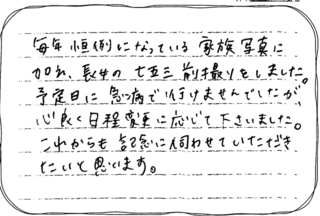 毎年恒例になっている家族写真に
加え、長女の七五三前撮りをしました。
予定日に急病で行けませんでしたが、
心良く日程変更に応じて下さいました。
これからも記念に伺わせていただき
たいと思います。